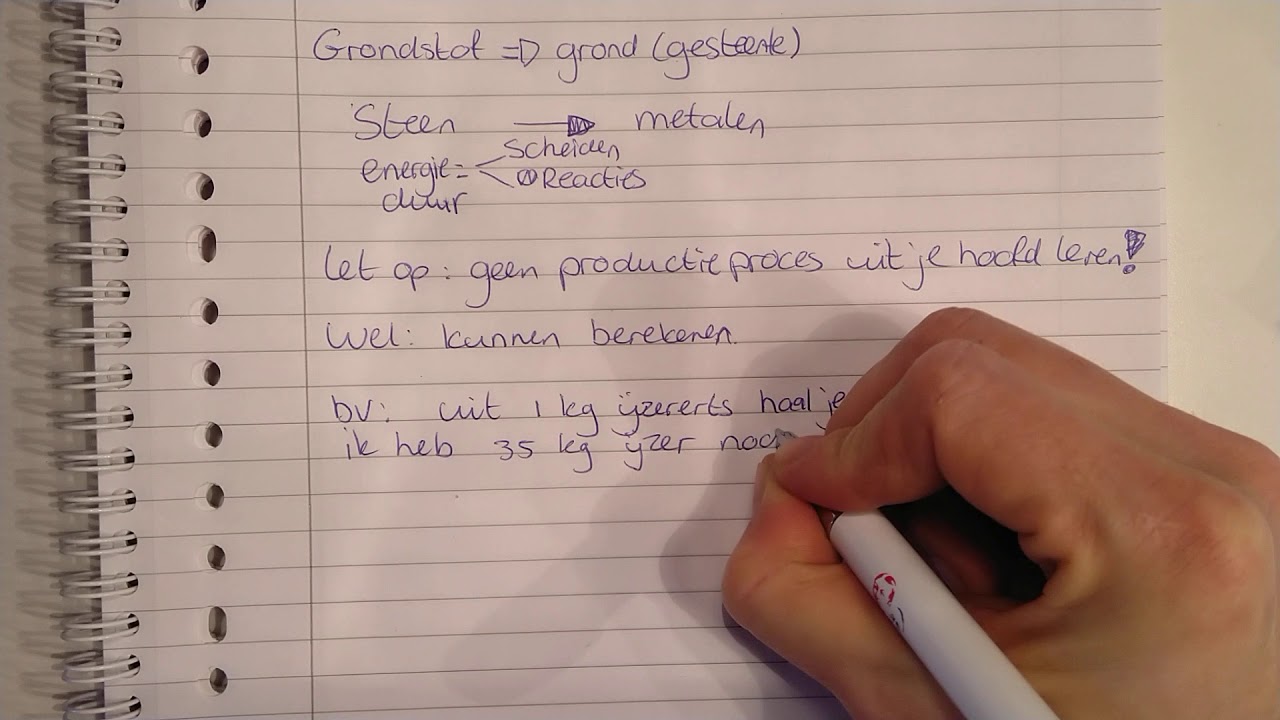 Grondstof => grond (gesteente)
Steen → metalen
energie = < Scheiden
duur Reacties
Let op: geen productieproces uit je hoofd leren!
Wel: kunnen berekenen.
bv: uit 1 kg ijzererts haal je
ik heb 35 kg ijzer